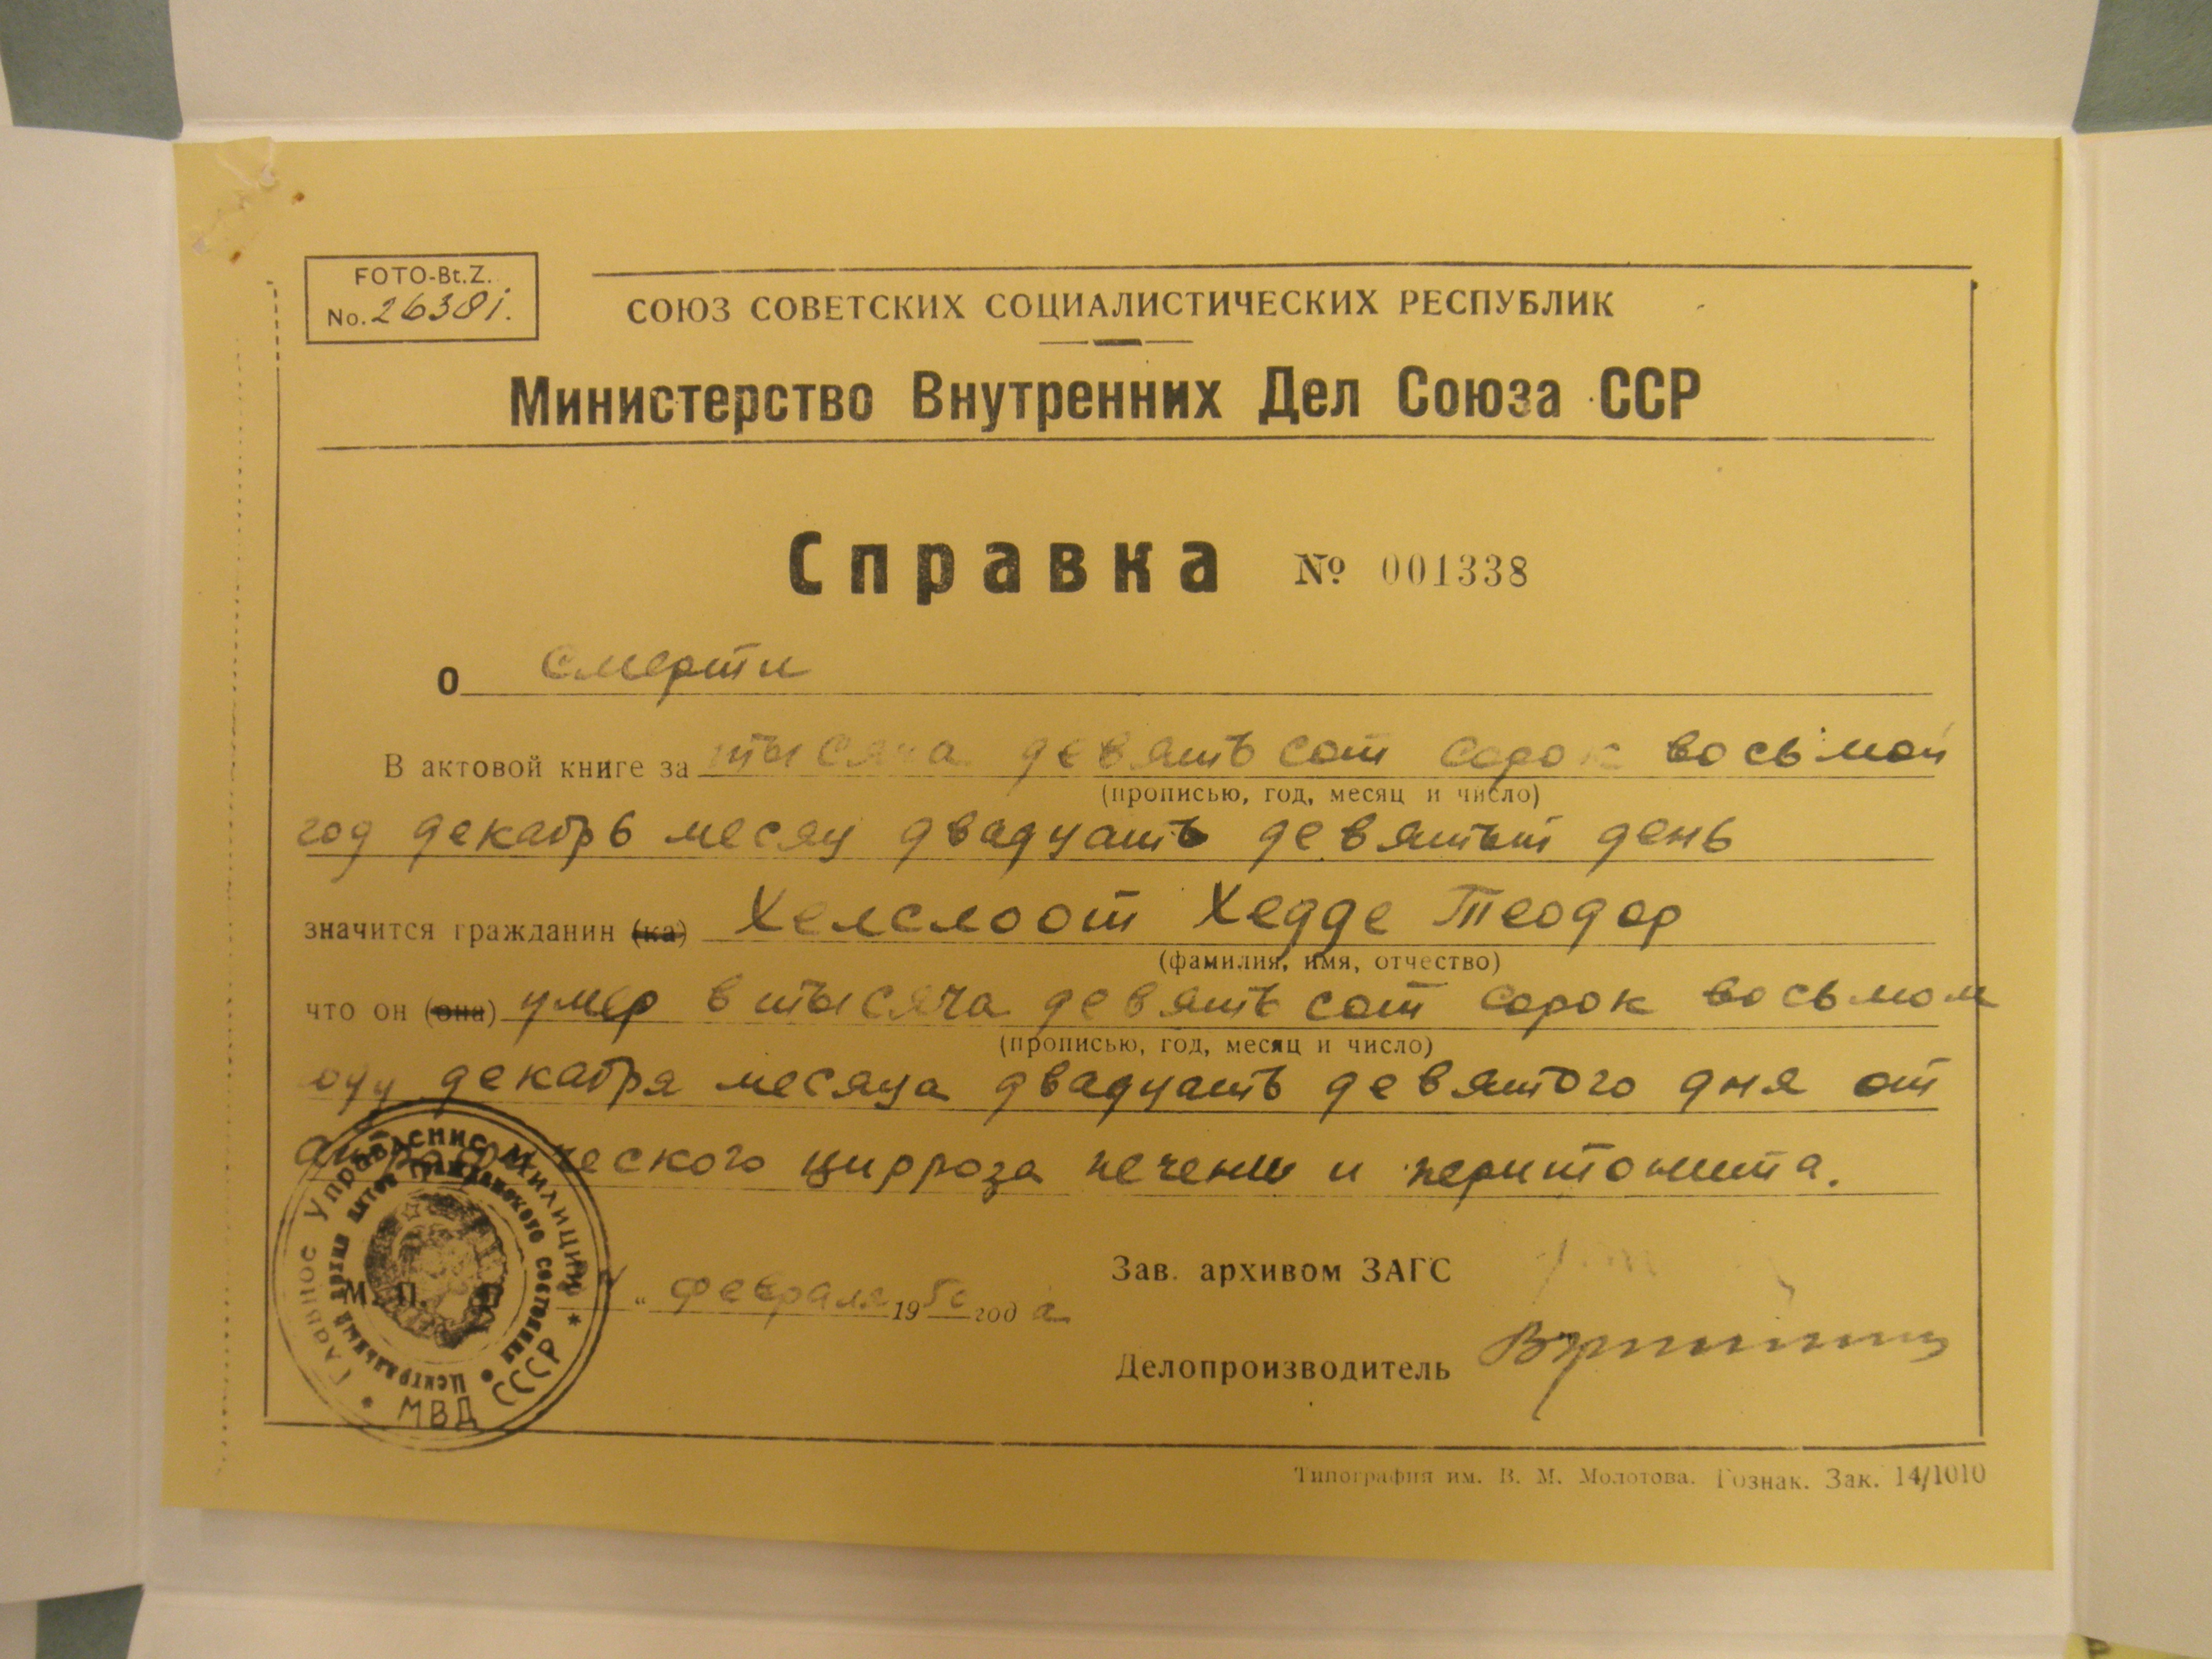 FOTO-Bt.Z.
No. 26381.
СОЮЗ СОВЕТСКИХ СОЦИАЛИСТИЧЕСКИХ РЕСПУБЛИК
Министерство Внутренних Дел Союза ССР
Справка № 001338
о смерти
В актовой книге за тысяча девятьсот сорок восьмой
(прописью, год, месяц и число)
год декабрь месяц двадцать девятый день
значится гражданин (ка) Хелслоот Хедде Теодор
(фамилия, имя, отчество)
что он (она) умер в тысяча девятьсот сорок восьмом
(прописью, год, месяц и число)
году декабря месяца двадцать девятого дня от
цирроза печени и перитонита.
Главное Управление Милиции * МВД СССР *
Центральный архив актов гражданского состояния
М. П.
" февраля 1950 года
Зав. архивом ЗАГС
Делопроизводитель
Типография им. В. М. Молотова. Гознак. Зак. 14/1010